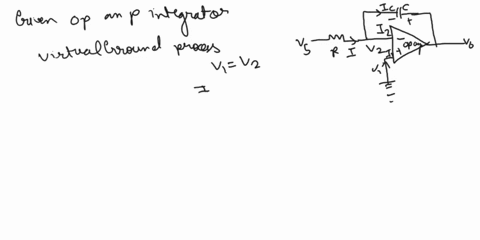 Given op amp integrator
Virtual Ground process
V1 = V2
I
Ic C
- +
I2
Vs R I V2 - opamp Vo
I1 +
V1